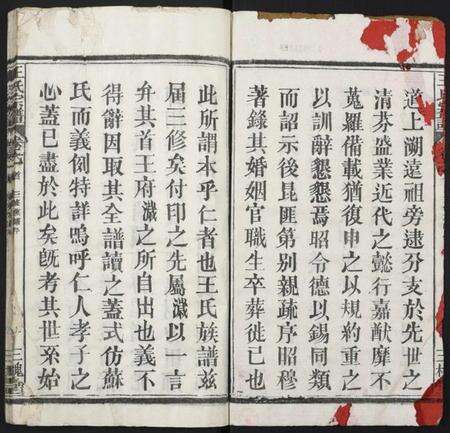 道上溯遠祖旁逮分支於先世之
清芬盛業近代之懿行嘉猷靡不
蒐羅備載猶復申之以規約重之
以訓辭懇懇焉昭令德以錫同類
而詔示後昆匪第別親疏序昭穆
著錄其婚姻官職生卒葬徙已也
此所謂本乎仁者也王氏族譜兹
届三修矣付印之先屬濊以一言
弁其首王府濊之所自出也義不
得辭因取其全譜讀之蓋式仿蘇
氏而義例特詳嗚呼仁人孝子之
心蓋已盡於此矣旣考其世系始
王氏宗譜
三槐堂